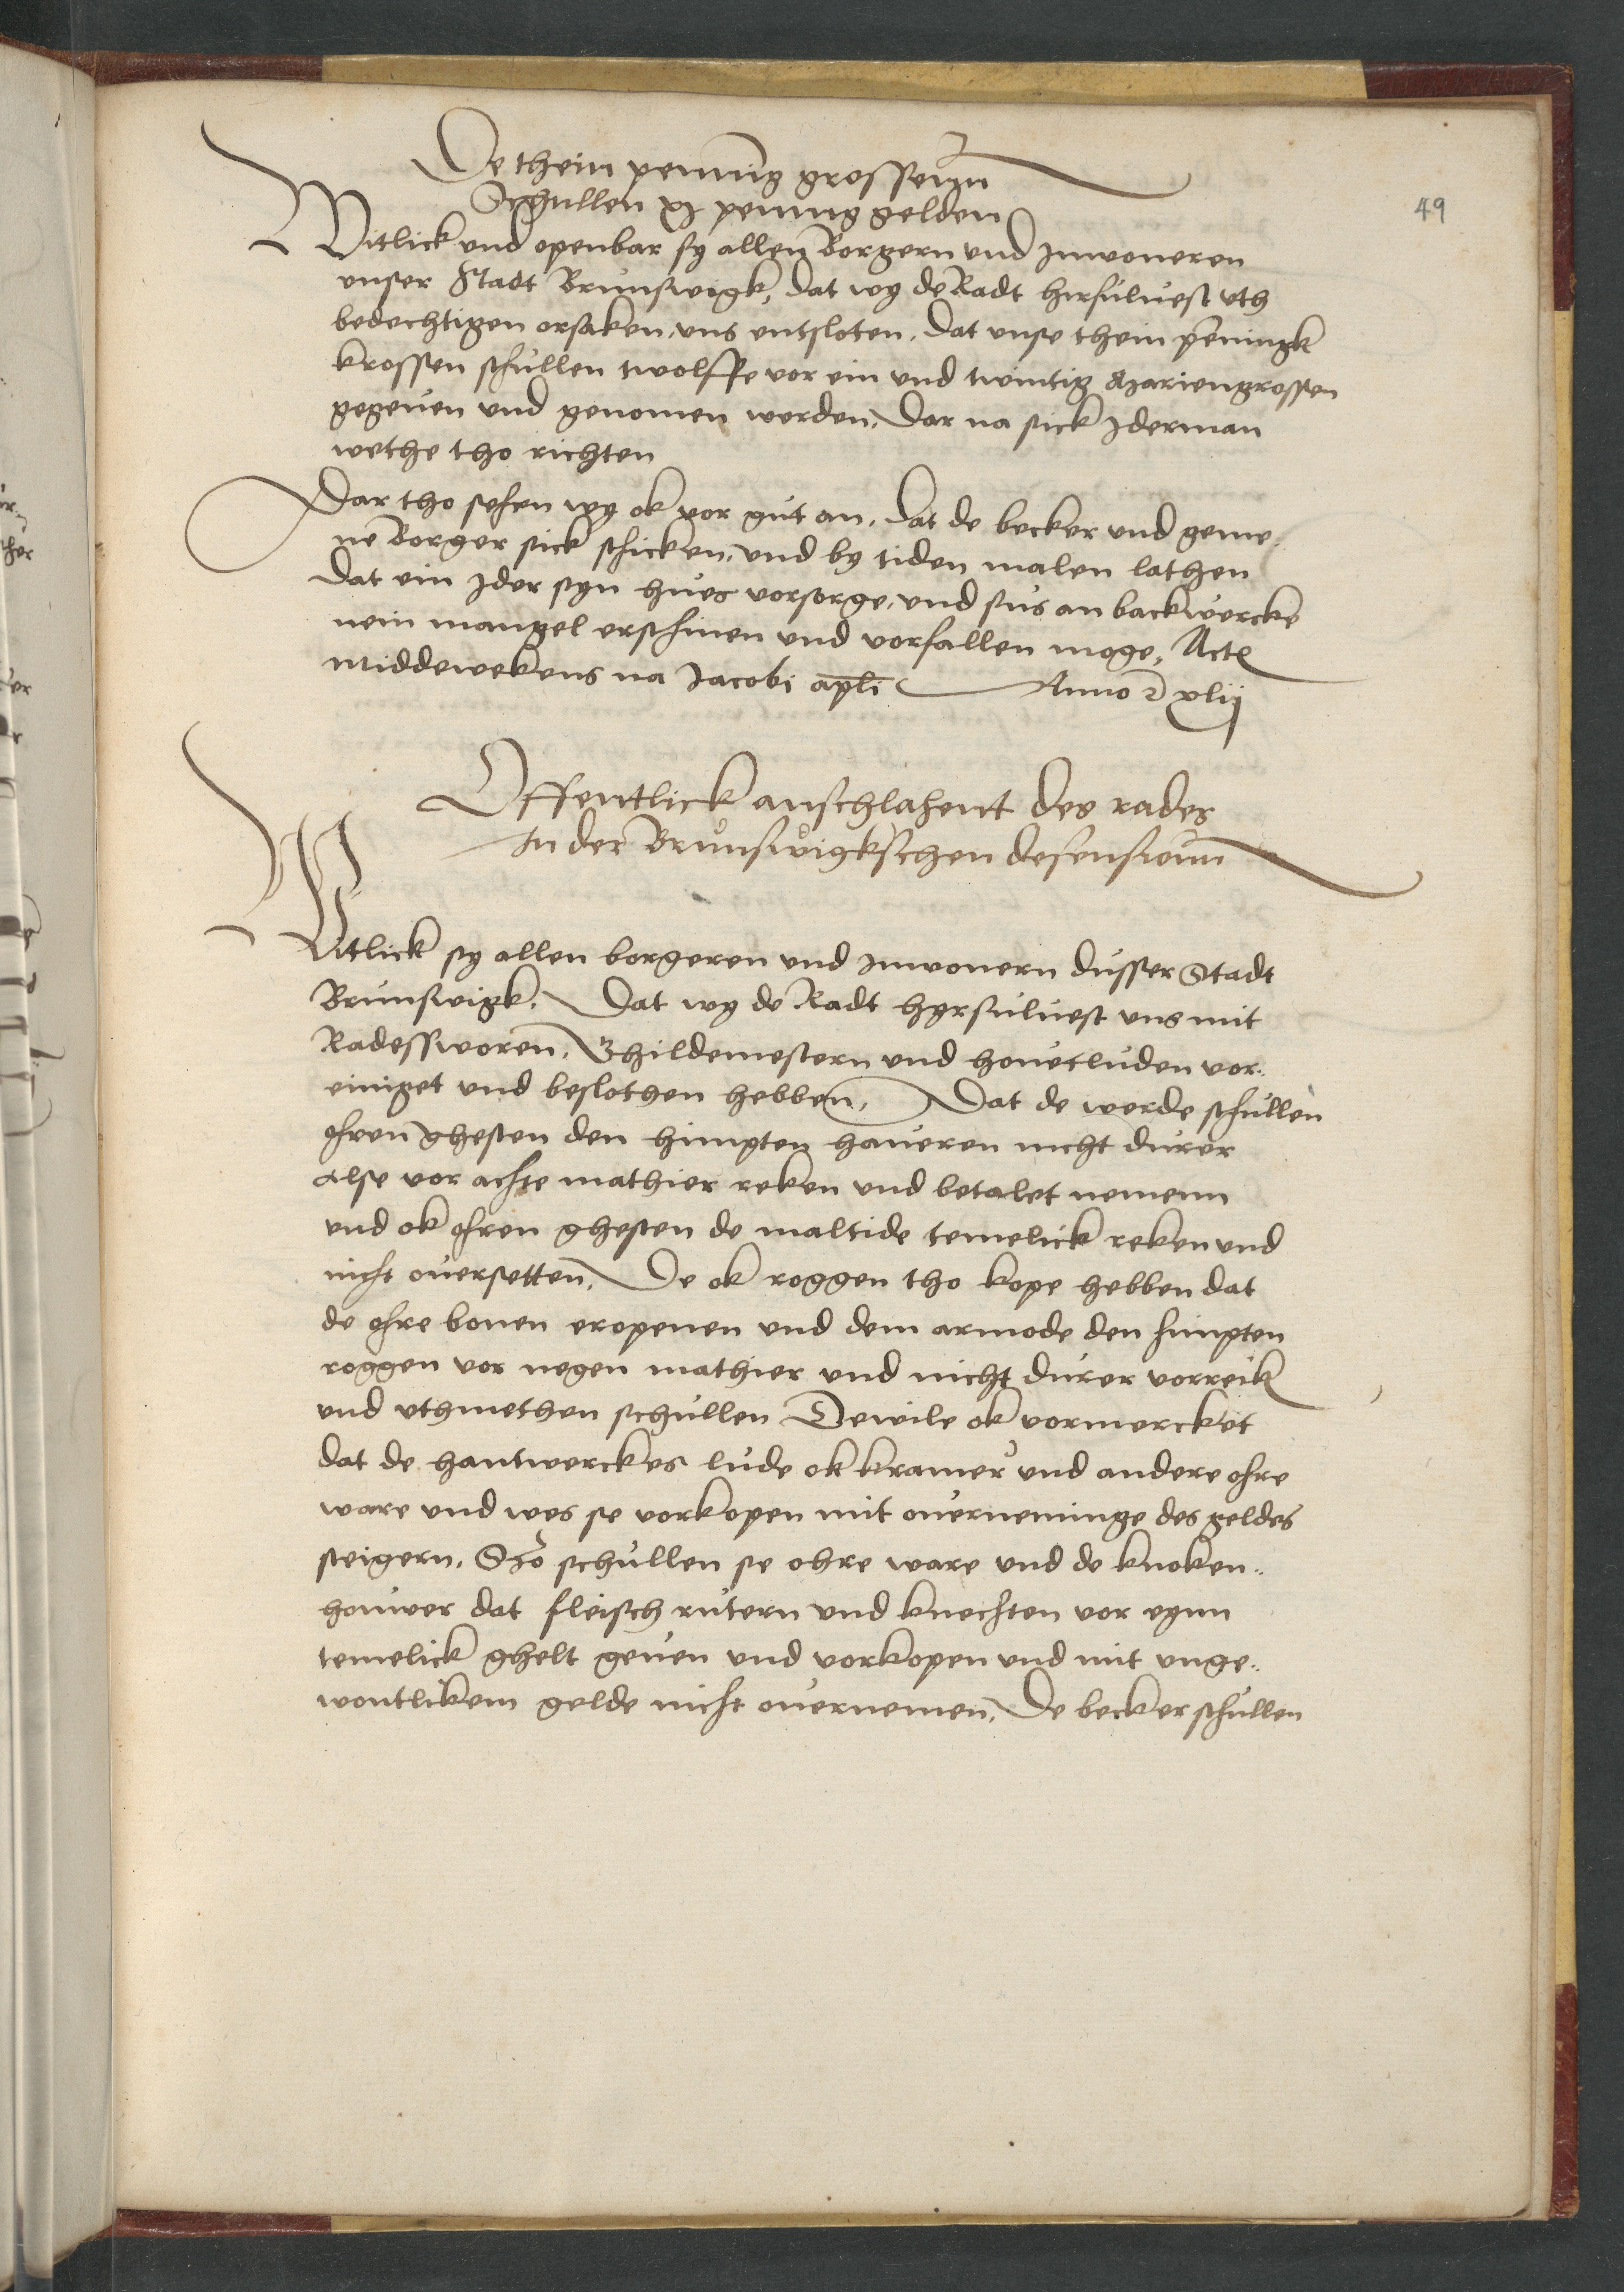 49
De thein penning grossenn
Schullen xj penning gelden
Witlick vnd openbar sy allen Borgern vnd Inwoneren
vnser Stadt Brunswigk, dat wy de Radt hirsuluest vth
bedechtigen orsaken, vns entsloten, dat vnse thein peningk
krossen schullen twolffe vor ein vnd twintig Mariengrossen
gegeuen vnd genomen werden, Dar na sick Jderman
wethe tho richten
Dar tho sehen wy ok vor gut an, dat de becker vnd geme„
ne Borger sick schicken, vnd by tiden malen lathen
Dat ein Jder syn hues vorsorge, vnd sus an backwercke
nein mangel erschinen vnd vorfallen moge, Act
Middewekens na Jacobi apli Anno xlij
Offentlick anschlahent des rades
In der Brunswigkschen defensionn
Witlick sy allen borgeren vnd Inwonern dusser Stadt
Brunswigk, Dat wy de Radt hyrsuluest vns mit
Radessworen, Ghildemestern vnd houetluden vor„
einiget vnd beslothen hebben, Dat de werde schullen
ohren ghesten den himpten haueren nicht durer
alse vor achte mathier reken vnd betalet nemenn
vnd ok ohren ghesten de maltide temelick reken vnd
nicht ouersetten, De ok roggen tho kope hebben dat
de ohre bonen eropenen vnd dem armode den himpten
roggen vor negen mathier vnd nicht durer vorreik
vnd vthmethen schullen Dewile ok vormercket
dat de hantwerckes lude ok kramer vnd andere ohre
ware vnd wes se vorkopen mit ouerneminge des geldes
steigern, Szo schullen se ohre ware vnd de knoken„
houwer dat fleisch rutern vnd knechten vor eynn
temelick ghelt geuen vnd vorkopen vnd mit vnge„
wontlikem gelde nicht ouernemen, De becker schullen